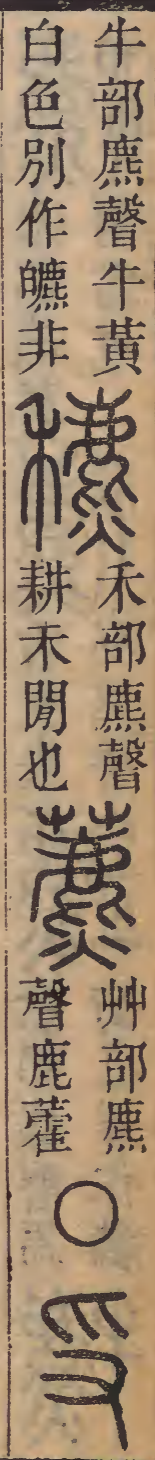 牛部麃聲牛黃
白色別作皫非
穮
禾部麃聲
耕禾閒也
藨
艸部麃
聲鹿藿
○
𠬪